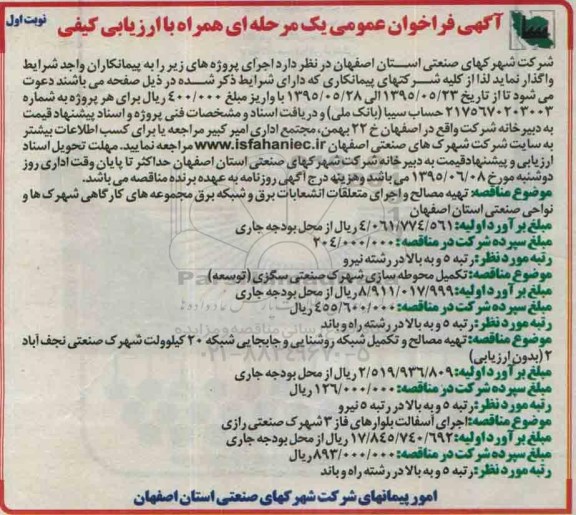 نوبت اول
آگهی فراخوان عمومی یک مرحله ای همراه با ارزیابی کیفی
شرکت شهرکهای صنعتی استان اصفهان در نظر دارد اجرای پروژه های زیر را به پیمانکاران واجد شرایط
واگذار نماید لذا از کلیه شرکتهای پیمانکاری که دارای شرایط ذکر شده در ذیل صفحه می باشند دعوت
می شود تا از تاریخ ۱۳۹۵/۰۵/۲۳ الی ۱۳۹۵/۰۵/۲۸ با واریز مبلغ ۴۰۰/۰۰۰ ریال برای هر پروژه به شماره
۲۱۷۵۶۷۰۲۰۳۰۰۳ حساب سیبا (بانک ملی) و دریافت اسناد و مشخصات فنی پروژه و اسناد پیشنهاد قیمت
به دبیرخانه شرکت واقع در اصفهان خ ۲۲ بهمن، مجتمع اداری امیرکبیر مراجعه یا برای کسب اطلاعات بیشتر
به سایت شرکت شهرک های صنعتی اصفهان www.isfahaniec.ir مراجعه نمایید. مهلت تحویل اسناد
ارزیابی و پیشنهادقیمت به دبیرخانه شرکت شهرکهای صنعتی استان اصفهان حداکثر تا پایان وقت اداری روز
دوشنبه مورخ ۱۳۹۵/۰۶/۰۸ می باشد وهزینه درج آگهی روزنامه به عهده برنده مناقصه می باشد.
موضوع مناقصه: تهیه مصالح و اجرای متعلقات انشعابات برق و شبکه برق مجموعه های کارگاهی شهرک ها و
نواحی صنعتی استان اصفهان
مبلغ برآورد اولیه: ۴/۰۶۱/۷۷۴/۵۶۱ ریال از محل بودجه جاری
مبلغ سپرده شرکت در مناقصه: ۲۰۴/۰۰۰/۰۰۰
رتبه مورد نظر: رتبه ۵ و به بالا در رشته نیرو
موضوع مناقصه: تکمیل محوطه سازی شهرک صنعتی سگزی (توسعه)
مبلغ برآورد اولیه: ۸/۹۱۱/۰۱۷/۹۹۹ ریال از محل بودجه جاری
مبلغ سپرده شرکت در مناقصه: ۴۵۵/۶۰۰/۰۰۰ ریال
رتبه مورد نظر: رتبه ۵ و به بالا در رشته راه و باند
موضوع مناقصه: تهیه مصالح و تکمیل شبکه روشنایی و جابجایی شبکه ۲۰ کیلوولت شهرک صنعتی نجف آباد
۲ (بدون ارزیابی)
مبلغ برآورد اولیه: ۲/۵۱۹/۹۳۶/۸۰۹ ریال از محل بودجه جاری
مبلغ سپرده شرکت در مناقصه: ۱۲۶/۰۰۰/۰۰۰ ریال
رتبه مورد نظر: رتبه ۵ و به بالا در رتبه ۵ نیرو
موضوع مناقصه: اجرای آسفالت بلوارهای فاز ۳ شهرک صنعتی رازی
مبلغ برآورد اولیه: ۱۷/۸۴۵/۷۴۰/۶۹۲ ریال از محل بودجه جاری
مبلغ سپرده شرکت در مناقصه: ۸۹۳/۰۰۰/۰۰۰ ریال
رتبه مورد نظر: رتبه ۵ و به بالا در رشته راه و باند
امور پیمانهای شرکت شهرکهای صنعتی استان اصفهان